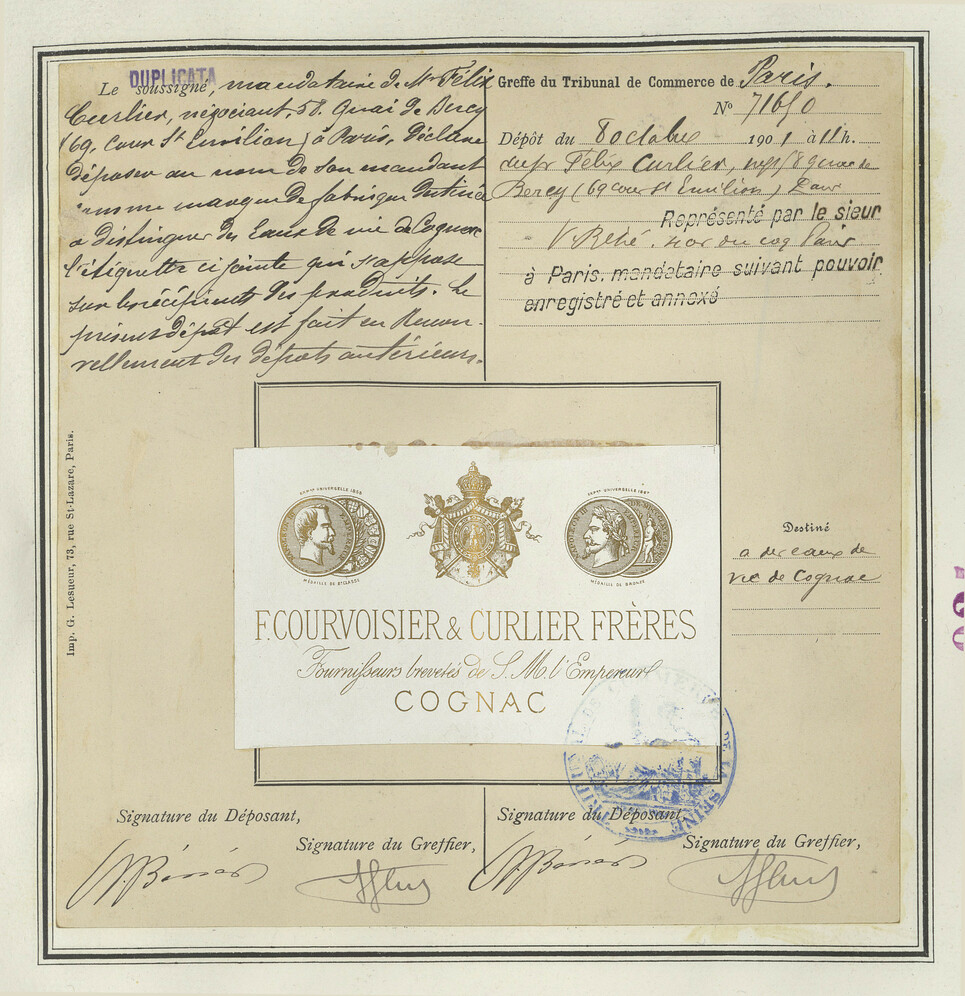 DUPLICATA
Le soussigné, mandataire de Mr Félix
Curlier, négociant, 58 Quai de Bercy
(69, Cour St Emilion) à Paris, déclare
déposer au nom de son mandant
comme marque de fabrique destinée
a distinguer des Eaux de vie de Cognac
l'étiquette ci jointe qui s'appose
sur les récipients des produits. Le
présent dépôt est fait en Renou-
vellement des dépôts antérieurs.
Greffe du Tribunal de Commerce de Paris.
No 71690
Dépôt du 8 octobre 1901 à 11 h.
Félix Curlier, quai de
Bercy (69 cour St Emilion) Paris
Représenté par le sieur
du coq Paris
à Paris, mandataire suivant pouvoir
enregistré et annexé
Imp. G. Lesueur, 73, rue St-Lazare, Paris.
EXPON UNIVERSELLE 1855
MÉDAILLE DE 1E CLASSE
EXPON UNIVERSELLE 1867
MÉDAILLE DE BRONZE
F. COURVOISIER & CURLIER FRÈRES
Fournisseurs brevetés de S. M. l'Empereur
COGNAC
Destiné
a des eaux de
vie de Cognac
TRIBUNAL DE COMMERCE DE LA SEINE
Signature du Déposant,
Signature du Greffier,
Signature du Déposant,
Signature du Greffier,